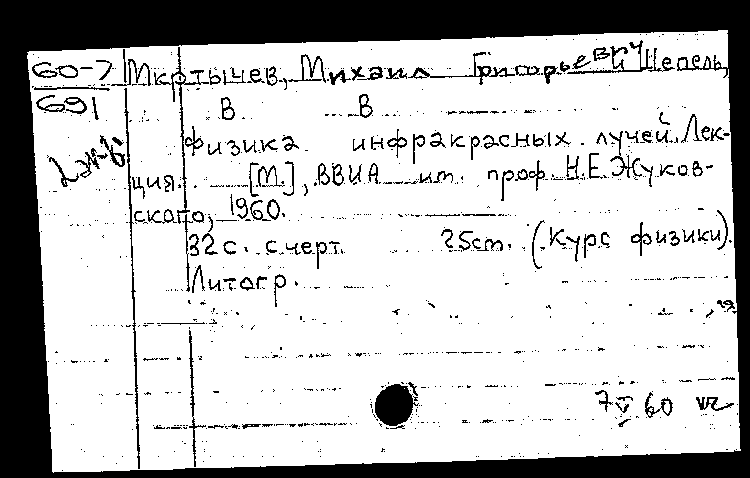 60-7 Мкртычев, Михаил Григорьевич и Шепель,
691 В В
2 экз.
Физика инфракрасных лучей. Лек-
ция. [М.], ВВИА им. проф. Н.Е. Жуков-
ского, 1960.
32 с. с черт. 25 см. (Курс физики).
Литогр.
7 V 60